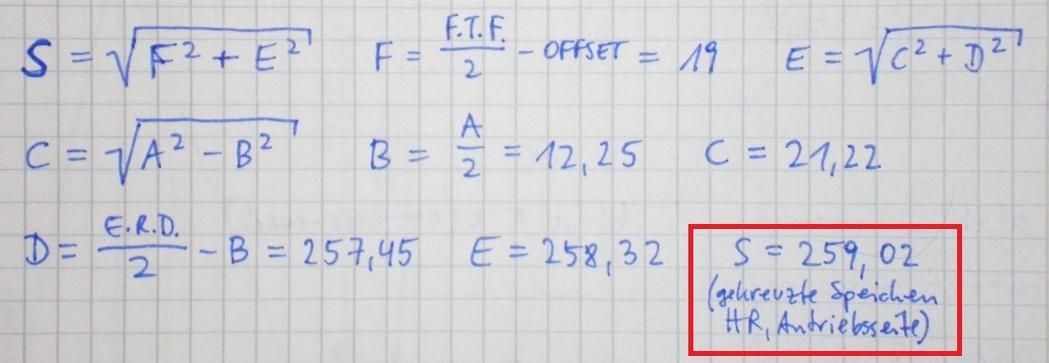 S = √(F² + E²) F = F.T.F./2 - OFFSET = 19 E = √(C² + D²)
C = √(A² - B²) B = A/2 = 12,25 C = 21,22
D = E.R.D./2 - B = 257,45 E = 258,32 S = 259,02
(gekreuzte Speichen
HR, Antriebsseite)